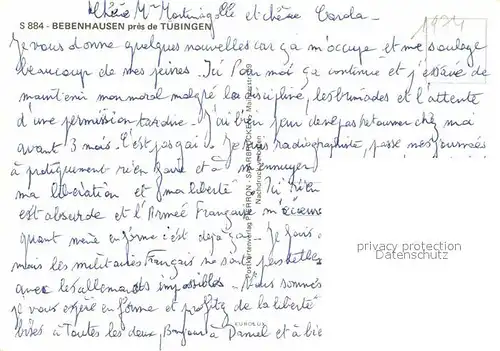 Chère Mme Martinagolle et chère Carola -
1974
S 884 - BEBENHAUSEN près de TÜBINGEN
Je vous donne quelques nouvelles car ça m'occupe et me soulage
beaucoup de mes peines. Ici Pour moi ça continue et j'essaie de
maintenir mon moral malgré la discipline, les brimades et l'attente
d'une permission tardive. J'ai bien peur de ne pas retourner chez moi
avant 3 mois. C'est pas gai. Je suis radiographiste, passe mes journées
à pratiquement rien faire et à m'ennuyer
ma libération et ma liberté. Ici rien
est absurde et l'Armée Française m'écœure
quant même en forme c'est déjà ça - Je
mais les militaires Français ne sont pas
avec les allemands impossibles. Nous sommes
je vous espère en forme et profitez de la liberté
bises à Toutes les deux, Bonjour à Daniel et à
Postkartenverlag PIERRON · SAARBRÜCKEN
Nachdruck verboten
EUROLUX
privacy protection
Datenschutz